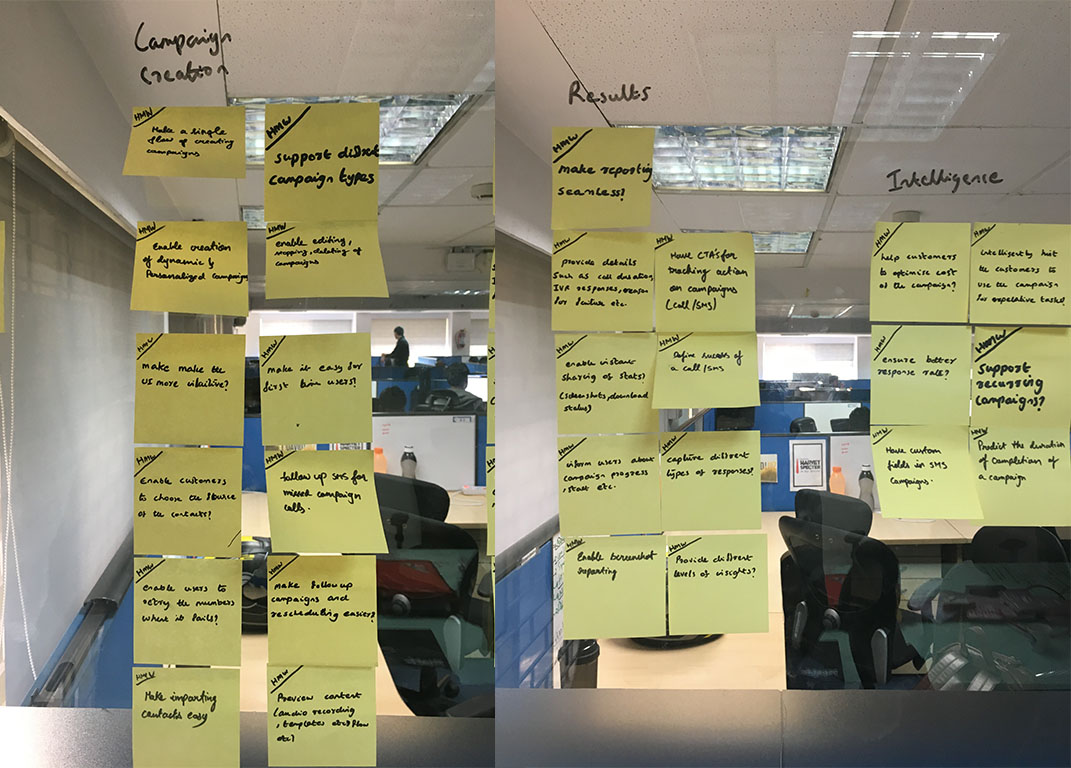 Campaign
Creation
HMW
Make a single
flow of creating
campaigns
HMW
support diffrent
campaign types
HMW
Enable creation
of dynamic &
Personalized campaigns
HMW
enable editing,
stopping, deleting of
campaigns
HMW
make make the
UI more intuitive?
HMW
make it easy for
first time users?
HMW
Enable customers
to choose the source
of the contacts?
HMW
follow up SMS for
missed campaign
calls.
HMW
enable users to
retry the numbers
where it fails?
HMW
Make follow up
campaigns and
rescheduling easier?
HMW
Make importing
contacts easy
HMW
Preview content
(audio recording
, templates etc) flow
etc)
Results
HMW
make reporting
seamless?
HMW
provide details
such as call duration,
IVR responses, reason
for failure etc.
HMW
Have CTA's for
tracking action
on campaigns
(call/SMS)
HMW
enable instant
sharing of stats?
(screenshots, download
status)
HMW
Define success of
a call/SMS
HMW
inform users about
campaign progress
, start etc.
HMW
capture diffrent
types of responses?
HMW
Enable Screenshot
reporting
HMW
Provide diffrent
levels of insights?
Intelligence
HMW
help customers
to optimise cost
of the campaign?
HMW
intelligently hint
the customers to
use the campaign
for repetative tasks?
HMW
ensure better
response rate?
HMW
Support
recurring
campaigns?
HMW
Have custom
fields in SMS
Campaigns.
HMW
Predict the duration
of completion of
a campaign
HARVEY
SPECTER